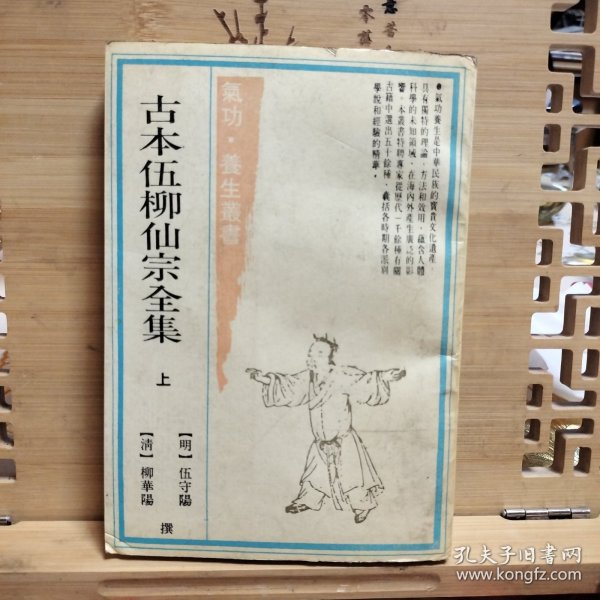 古本伍柳仙宗全集 上
【明】伍守陽
【清】柳華陽
撰
氣功·養生叢書
●氣功養生是中華民族的寶貴文化遺產
具有獨特的理論、方法和效用，蘊含人體
科學的未知領域，在海內外產生廣泛的影
響。本叢書特聘專家從歷代一千餘種有關
古籍中選出五十餘種，囊括各時期各派別
學說和經驗的精華。
孔夫子旧书网
www.kongfz.com